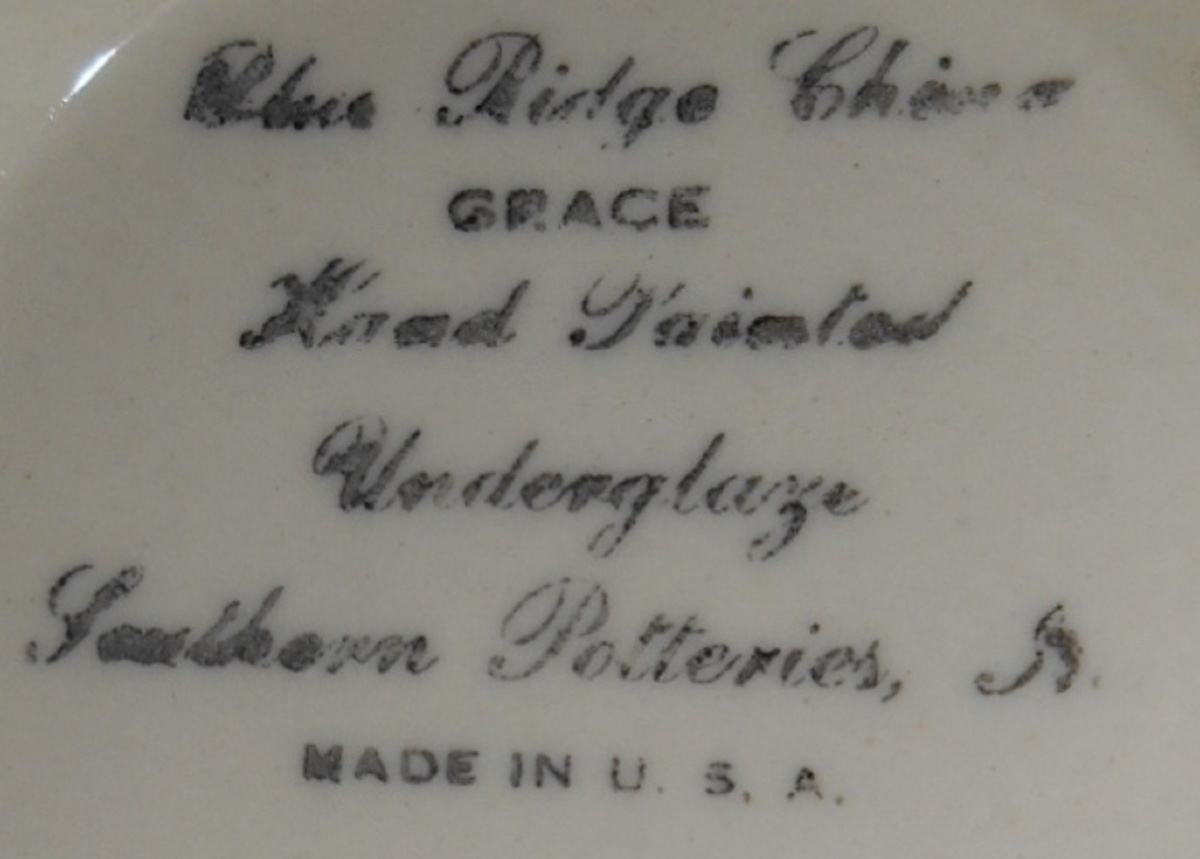 Blue Ridge China
GRACE
Hand Painted
Underglaze
Southern Potteries,
MADE IN U. S. A.